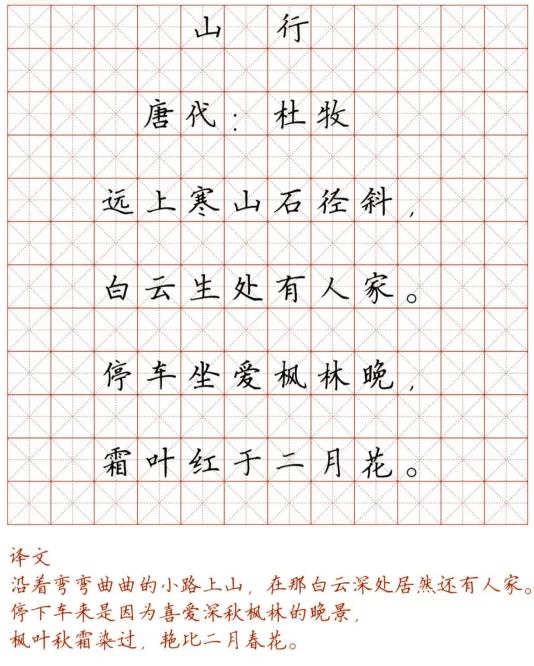 山 行
唐代：杜牧
远上寒山石径斜，
白云生处有人家。
停车坐爱枫林晚，
霜叶红于二月花。
译文
沿着弯弯曲曲的小路上山，在那白云深处居然还有人家。
停下车来是因为喜爱深秋枫林的晚景，
枫叶秋霜染过，艳比二月春花。